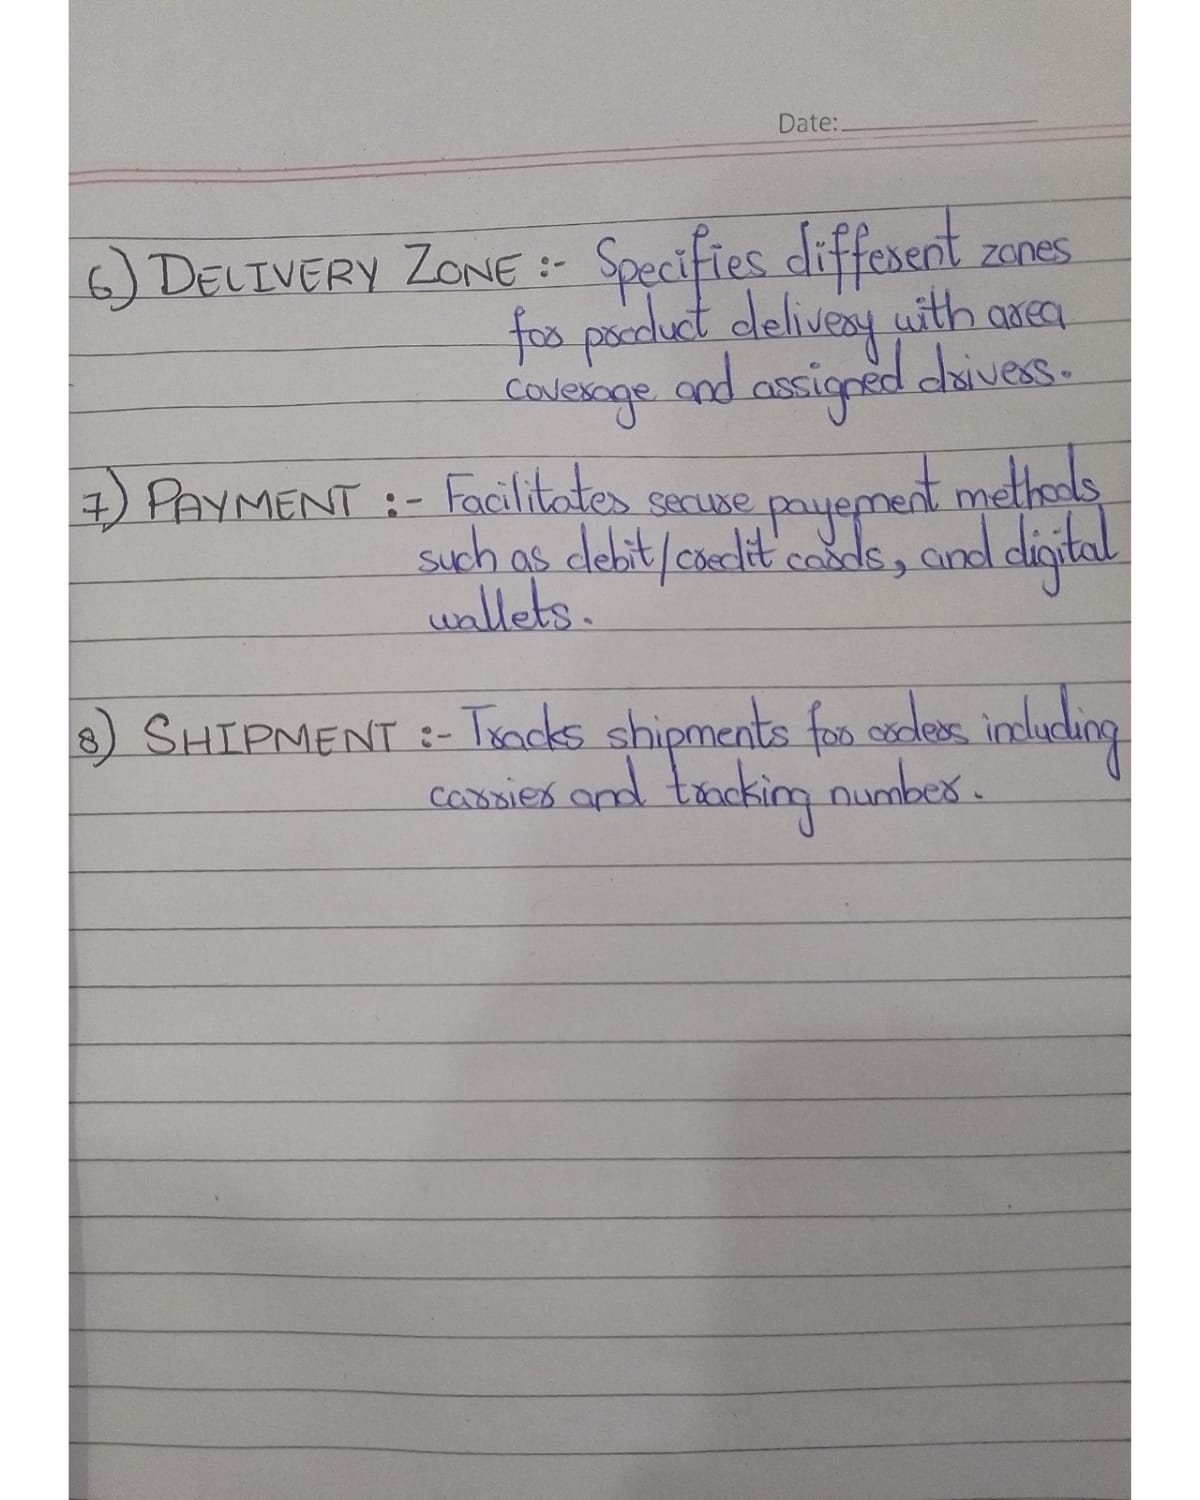 Date:
6) DELIVERY ZONE :- Specifies different zones
for product delivery with area
coverage and assigned drivers.
7) PAYMENT :- Facilitates secure payement methods
such as debit/credit cards, and digital
wallets.
8) SHIPMENT :- Tracks shipments for orders including
carrier and tracking number.